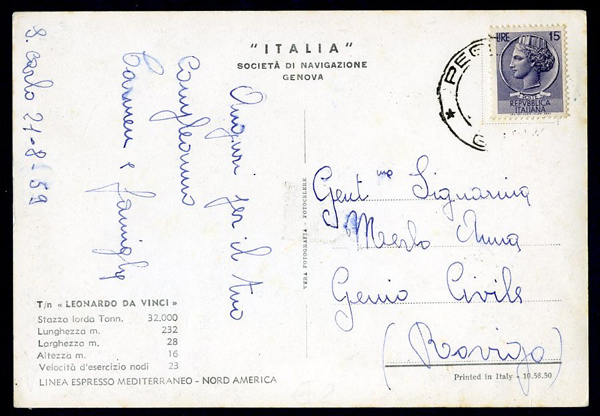 S. Carlo 21-8-59
Auguri per il tuo
Compleanno
Carmen e famiglia
"ITALIA"
SOCIETÀ DI NAVIGAZIONE
GENOVA
LIRE 15
POSTE
REPVBBLICA
ITALIANA
PEGLI
VERA FOTOGRAFIA - FOTOCELERE
Gent ma Signorina
Merlo Anna
Genio Civile
(Rovigo)
T/n « LEONARDO DA VINCI »
Stazza lorda Tonn. 32.000
Lunghezza m. 232
Larghezza m. 28
Altezza m. 16
Velocità d'esercizio nodi 23
LINEA ESPRESSO MEDITERRANEO - NORD AMERICA
Printed in Italy - 10.58.50